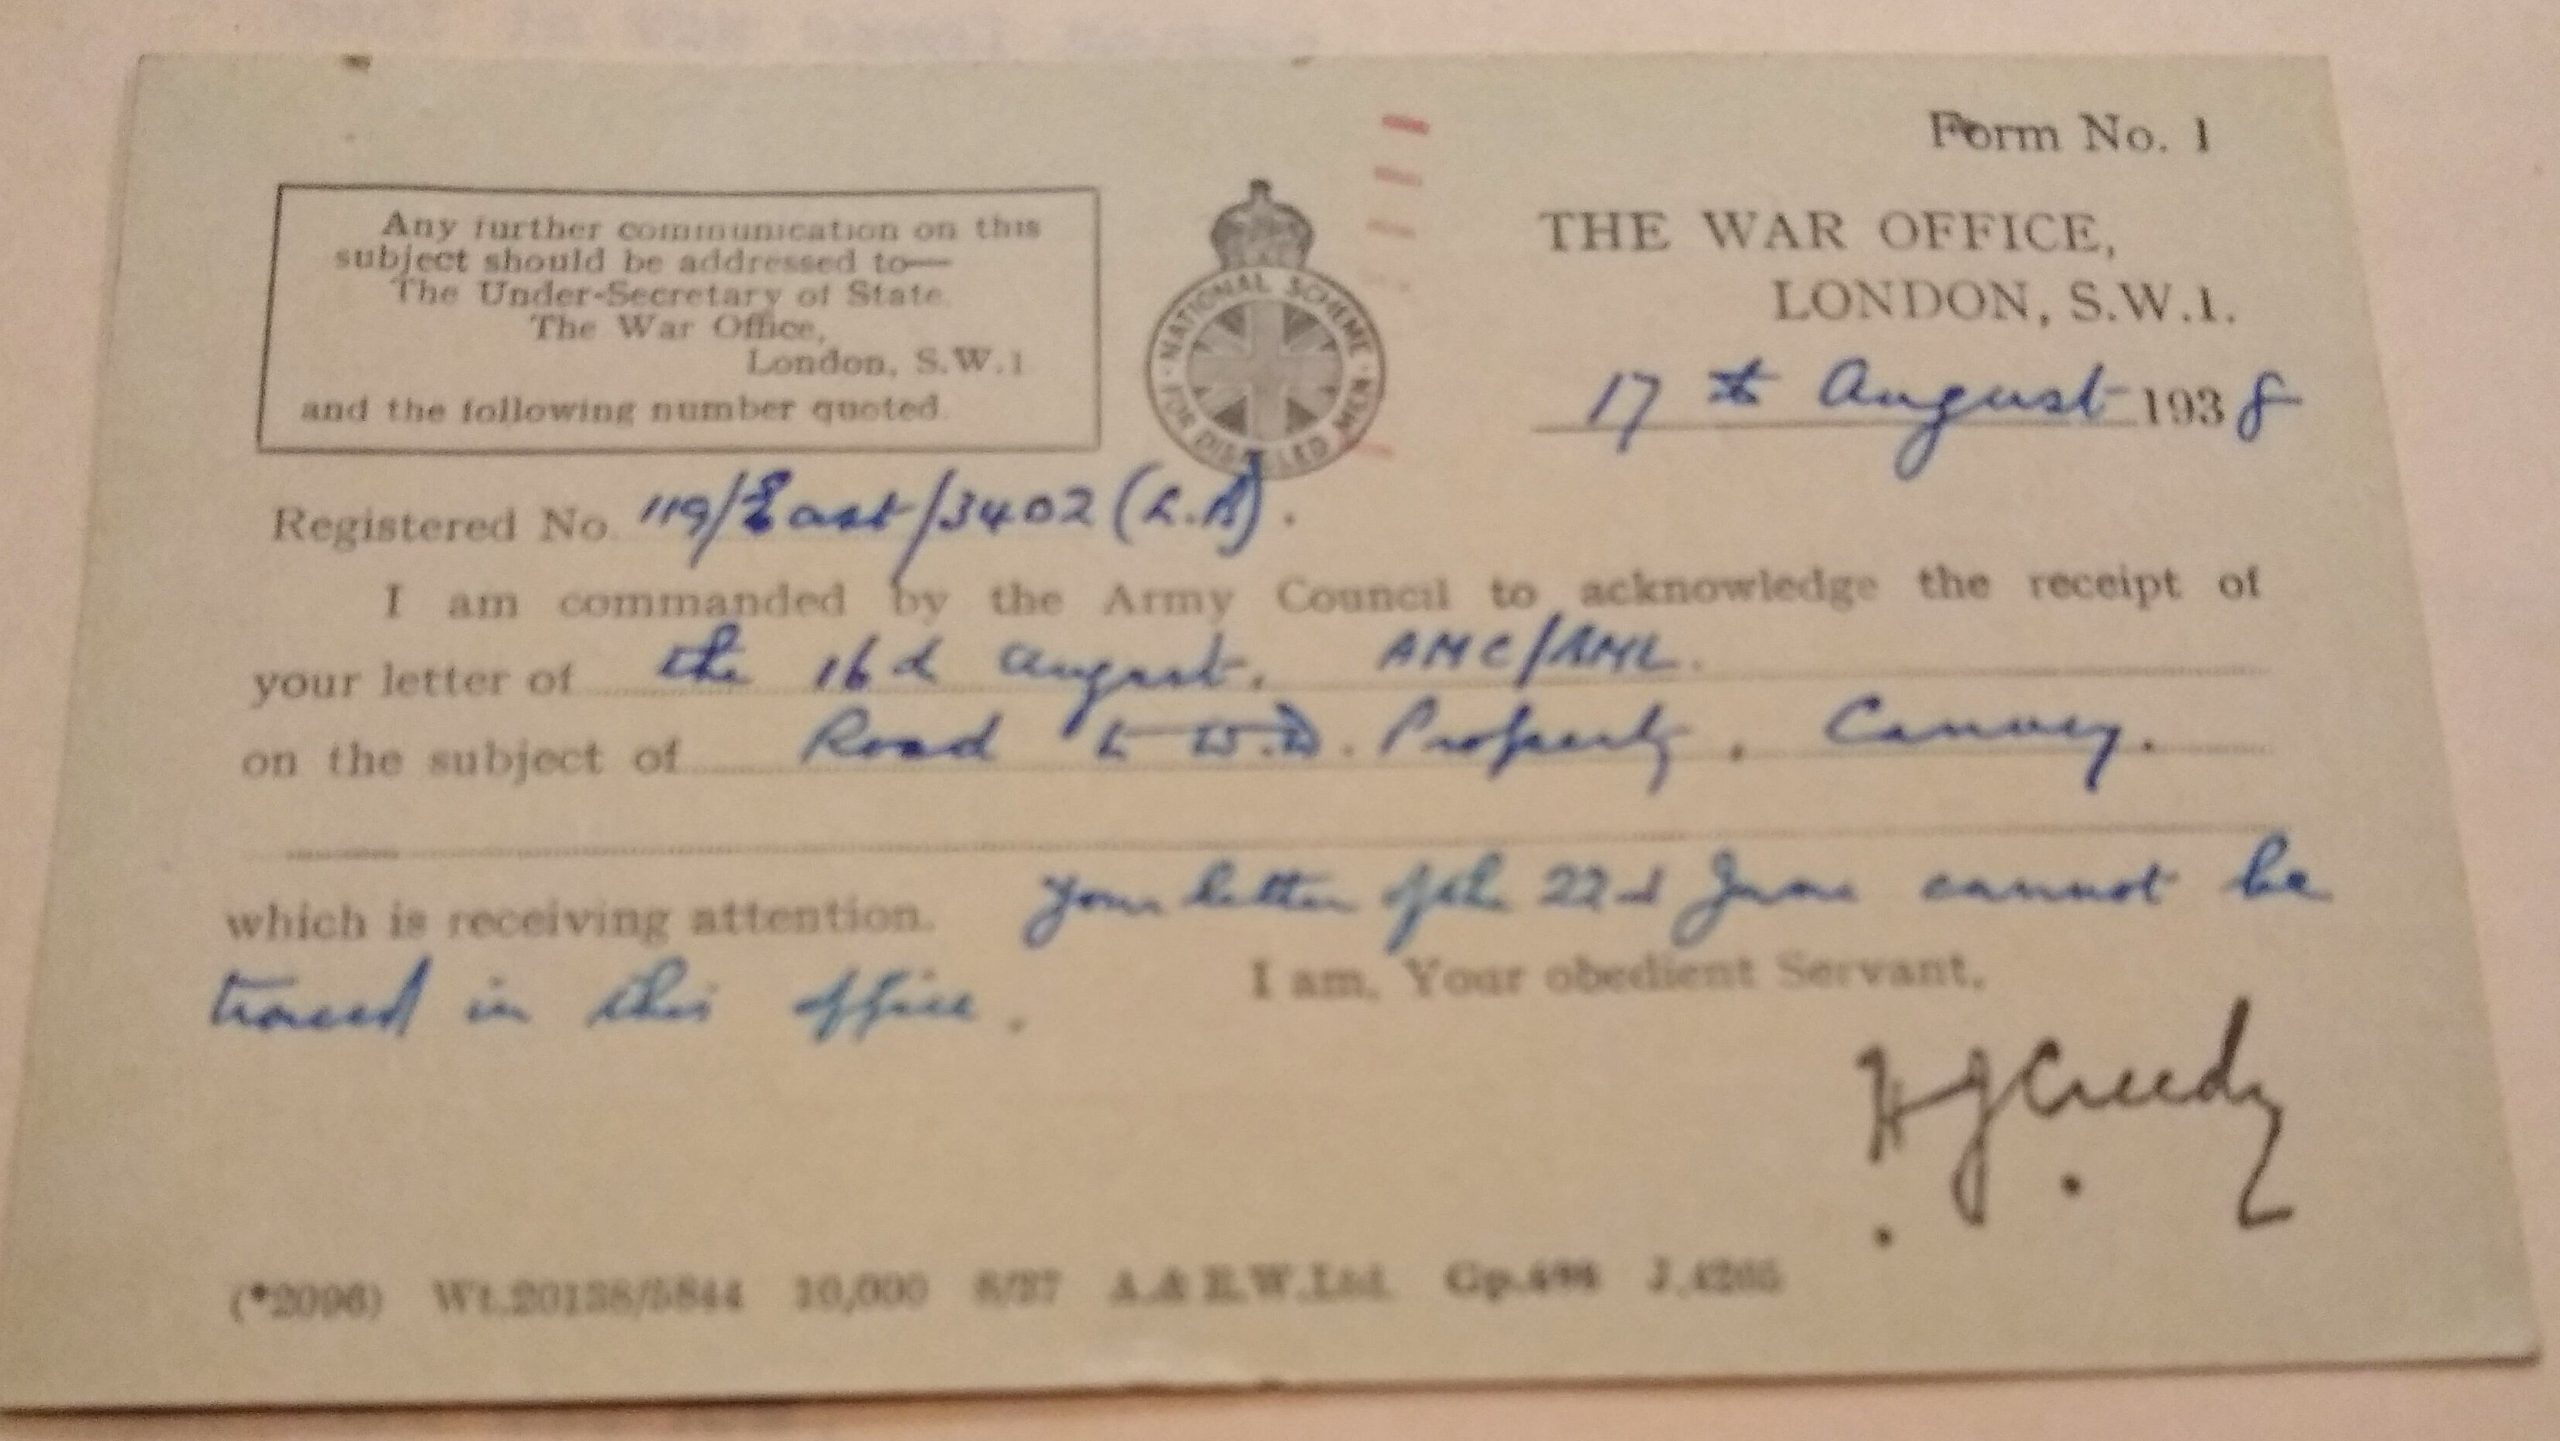 Form No. 1
Any further communication on this
subject should be addressed to—
The Under-Secretary of State.
The War Office,
London, S.W.1
and the following number quoted.
NATIONAL SCHEME
FOR DISABLED MEN
THE WAR OFFICE,
LONDON, S.W.1.
17th August 1938
Registered No. 119/East/3402 (L.A).
I am commanded by the Army Council to acknowledge the receipt of
your letter of the 16th August. AMC/
on the subject of Road to W.D. Property, Canvey.
which is receiving attention. Your letter of the 22nd June cannot be
traced in this office.
I am, Your obedient Servant,
H J Creedy
(*2096) Wt.20138/5844 10,000 8/37 A.& E.W.Ltd. Gp.698 J.4265